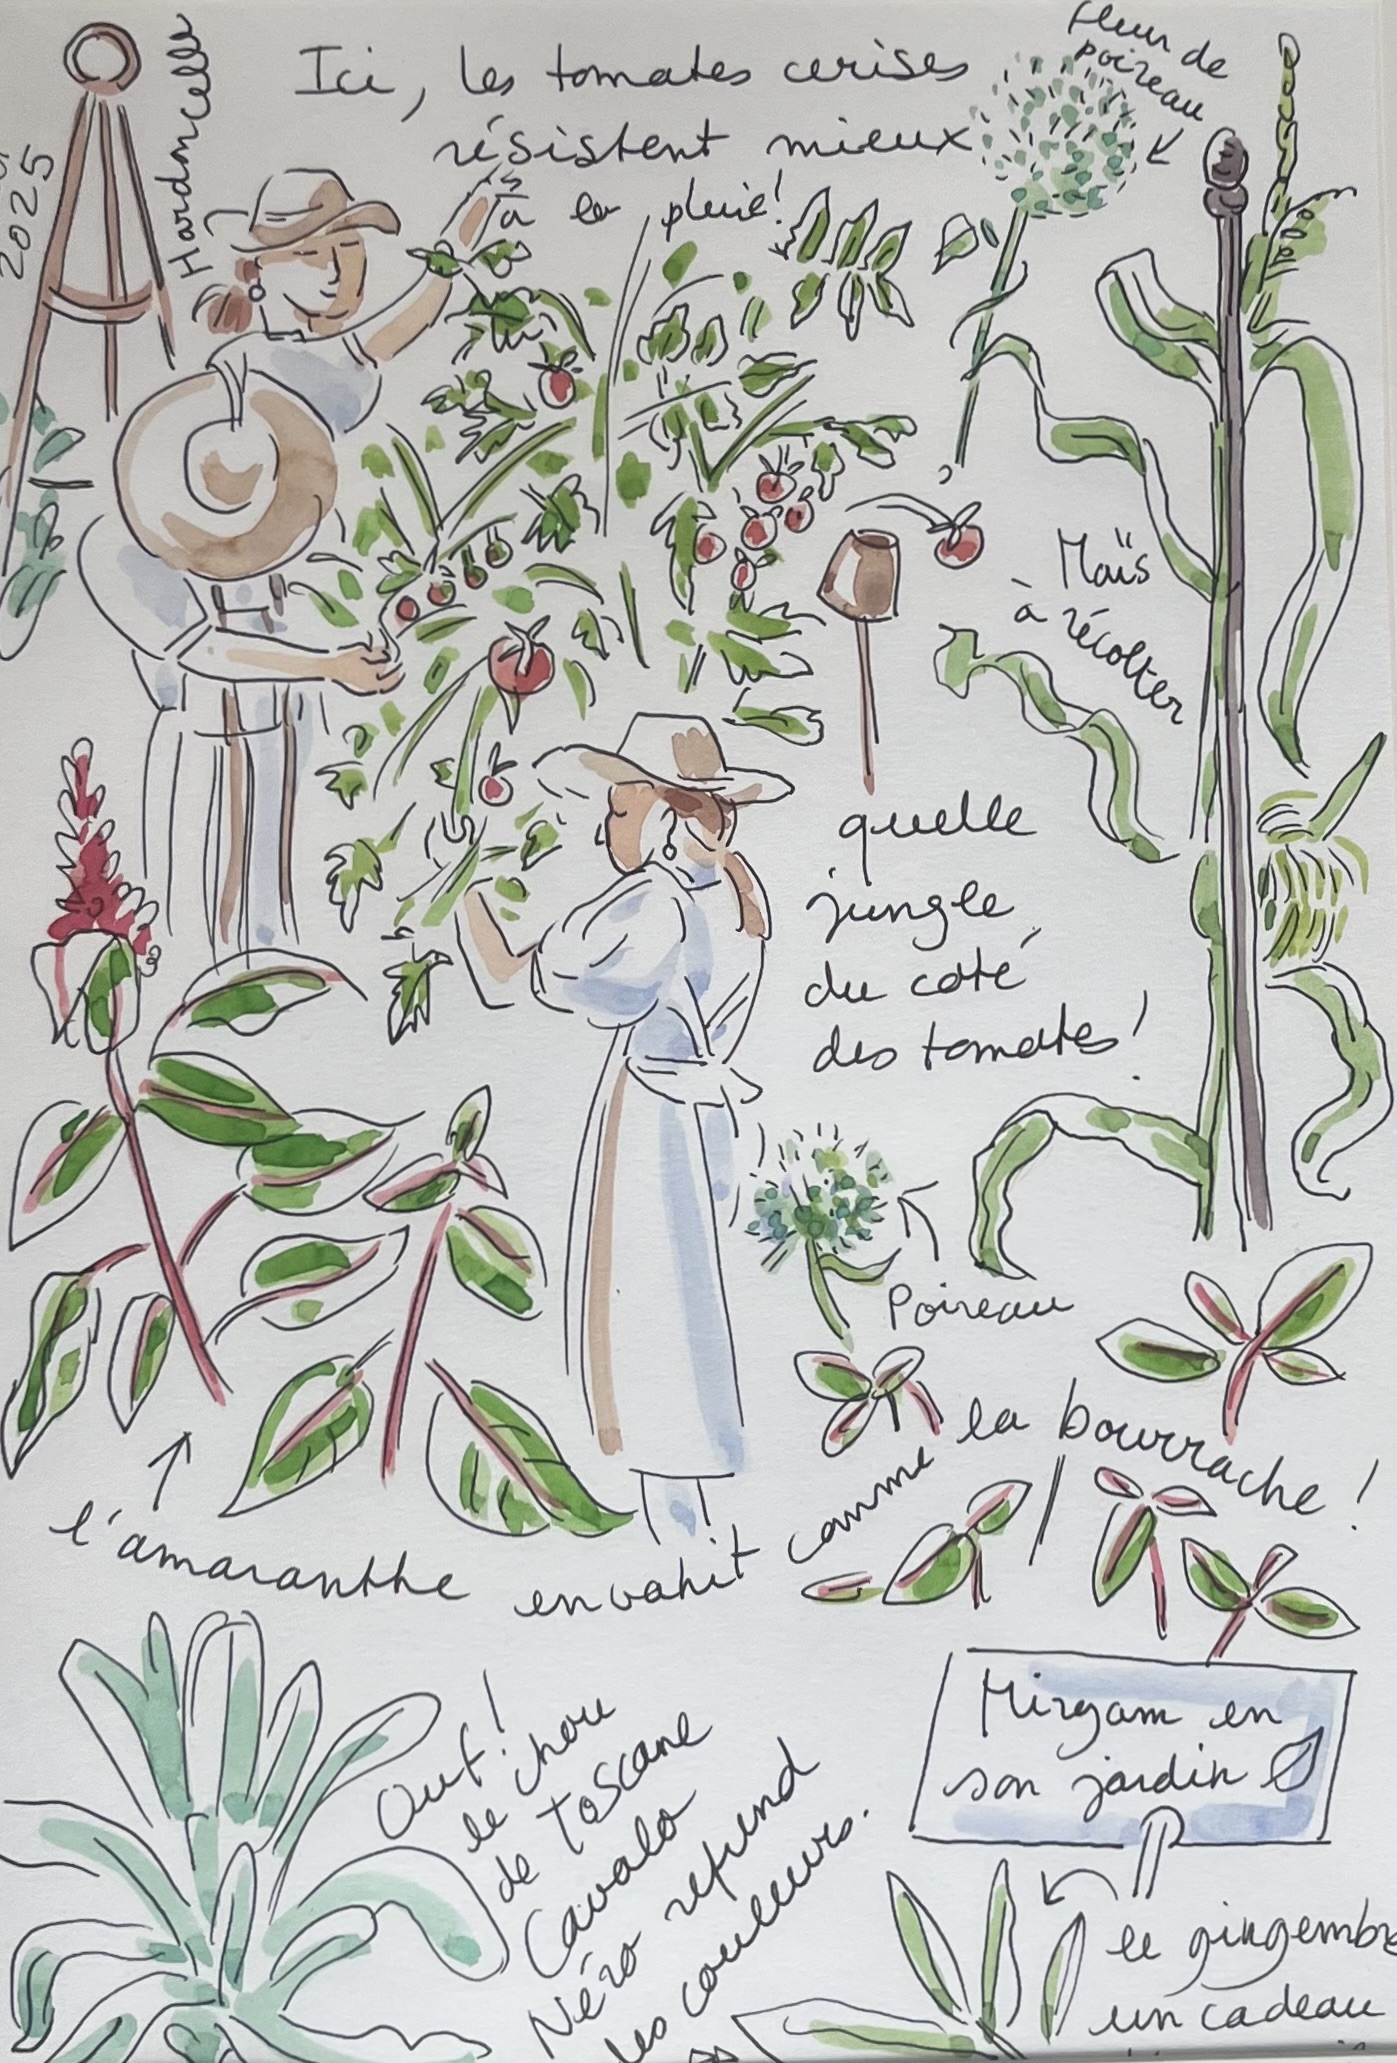 2025
Hardoncelle
Ici, les tomates cerises
résistent mieux
à la pluie!
Fleur de
poireau
Maïs
à récolter
quelle
jungle
du coté
des tomates!
Poireau
l'amaranthe envahit comme la bourrache!
Ouf!
le chou
de Toscane
Cavalo
Néro reprend
des couleurs.
Mirgam en
son jardin
le gingembre
un cadeau